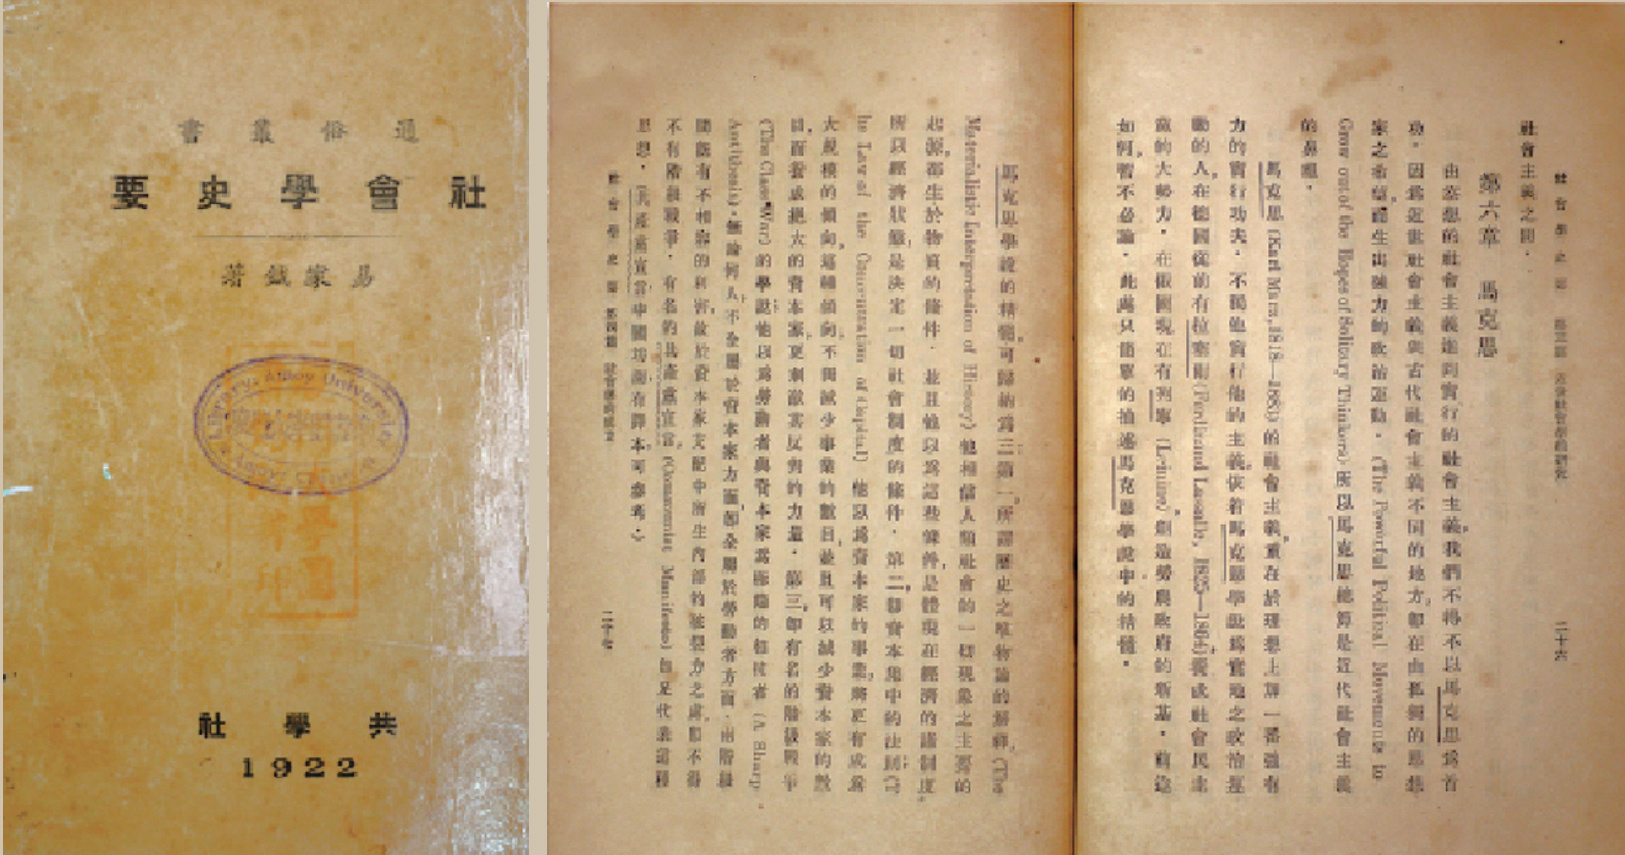 通俗叢書
社會學史要
易家鉞著
Library, Amoy University
共學社
1922
社會學史要
二十六
社會主義之間．
第六章　馬克思
由空想的社會主義進到實行的社會主義，我們不得不以馬克思爲首
功．因爲近世社會主義與古代社會主義不同的地方，卽在由孤獨的思想
家之希望，產生出強力的政治運動．(The Powerful Political Movements to
Grow out of the Hopes of Solitary Thinkers) 所以馬克思總算是近代社會主義
的鼻祖．
馬克思 (Karl Marx, 1818—1883) 的社會主義，重在於理想上加一番強有
力的實行功夫．不獨他實行他的主義，依着馬克思學說爲實地之政治運
動的人，在德國從前有拉塞爾 (Ferdinand Lassalle, 1825—1864) 養成社會民主
黨的大勢力．在俄國現在有列寧 (Leinine) 創造勞農政府的新基．前途
如何，暫不必論．此處只簡單的描述馬克思學說中的精髓．
馬克思學說的精髓，可歸納爲三：第一，所謂歷史之唯物論的解釋，(The
Materialistic Interpretation of History) 他相信人類社會的一切現象之主要的
起源，都生於物質的條件．並且他以爲這些條件，是體現在經濟的諸制度，
所以經濟狀態，是決定一切社會制度的條件．第二，卽資本集中的法則 (T
he Law of the Concentration of Capital) 他以爲資本家的事業，將更有成爲
大規模的傾向，這種傾向，不獨減少事業的數目，並且可以減少資本家的數
目，而養成絕大的資本家，更刺激其反對的力量．第三，卽有名的階級戰爭
(The Class War) 的學說，他以爲勞動者與資本家爲極端的相反者 (A Sharp
Antithesis)．無論何人，不全屬於資本家方面，卽全屬於勞動者方面．兩階級
間旣有不相容的利害，故於資本家支配中所生內部的破裂力之處，卽不得
不有階級戰爭．有名的共產黨宣言 (Communist Manifesto) 卽足代表這種
思想．（共產黨宣言中國坊間有譯本，可參考．）
社會學史要
二十七